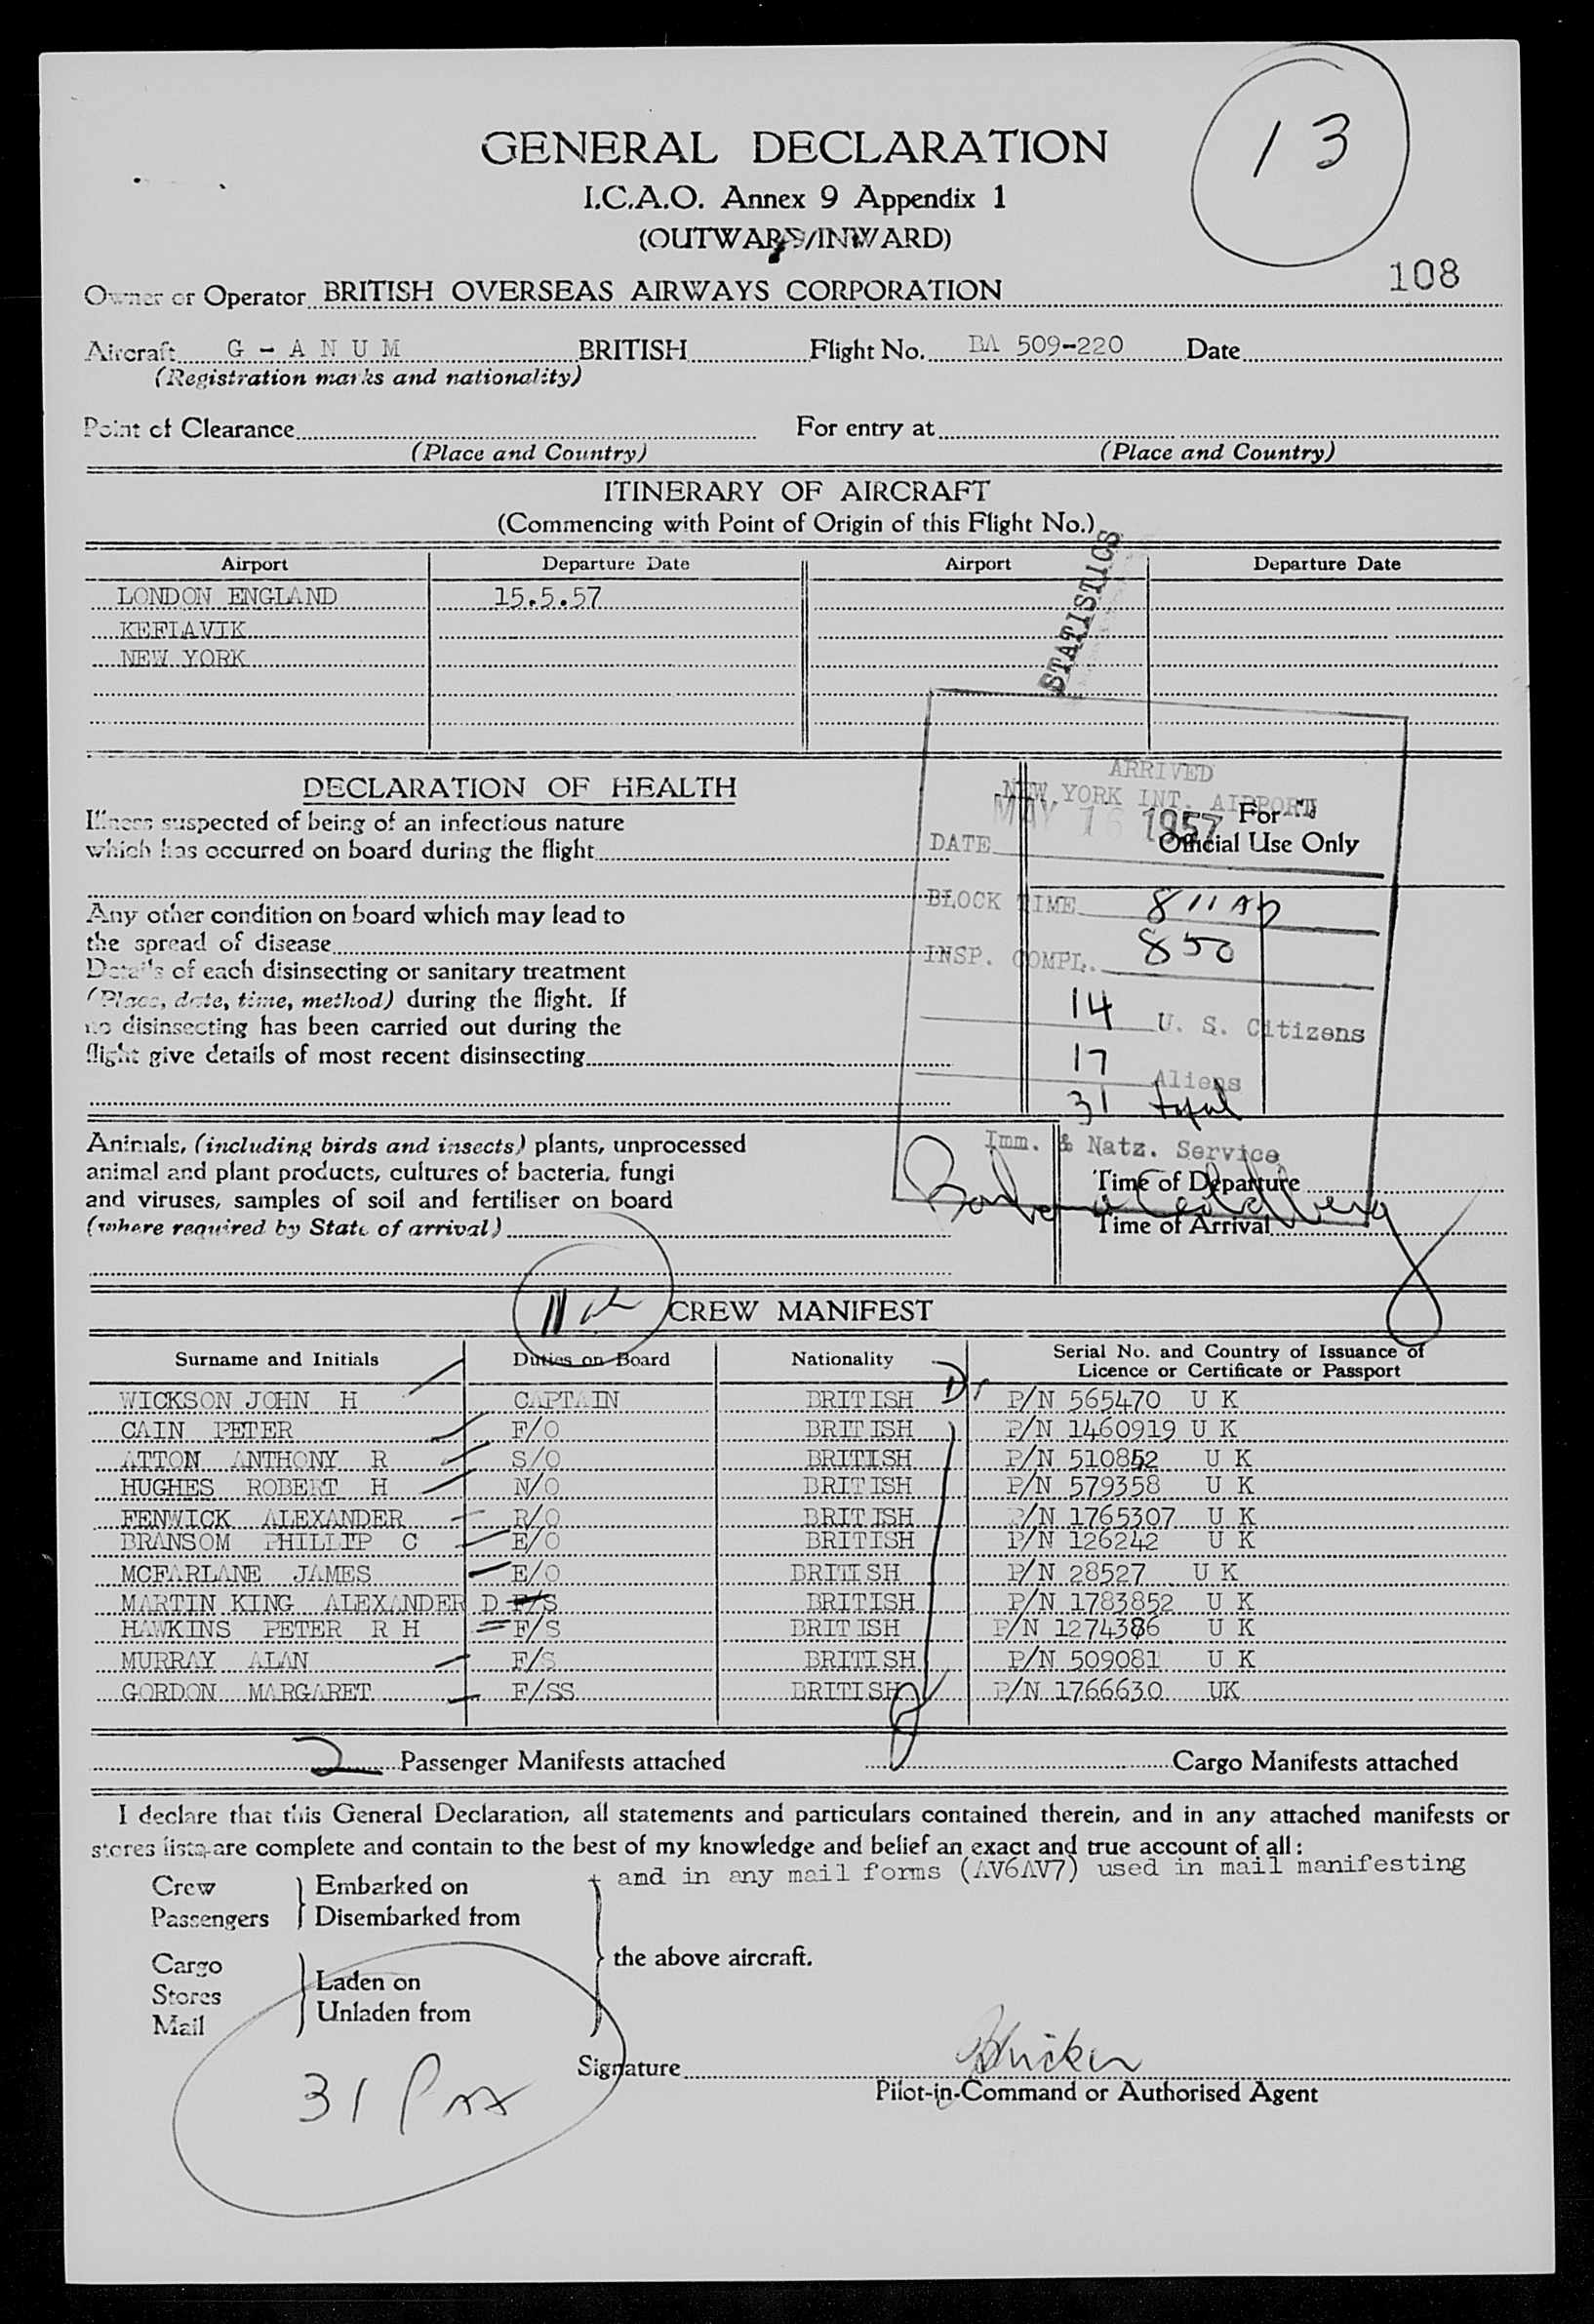 13
GENERAL DECLARATION
I.C.A.O. Annex 9 Appendix 1
(OUTWARD/INWARD)
108
Owner or Operator BRITISH OVERSEAS AIRWAYS CORPORATION
Aircraft G - A N U M BRITISH Flight No. BA 509-220 Date
(Registration marks and nationality)
Point of Clearance For entry at
(Place and Country) (Place and Country)
ITINERARY OF AIRCRAFT
(Commencing with Point of Origin of this Flight No.)
STATISTICS
Airport Departure Date Airport Departure Date
LONDON ENGLAND 15.5.57
KEFLAVIK
NEW YORK
DECLARATION OF HEALTH
Illness suspected of being of an infectious nature
which has occurred on board during the flight
Any other condition on board which may lead to
the spread of disease
Details of each disinsecting or sanitary treatment
(Place, date, time, method) during the flight. If
no disinsecting has been carried out during the
flight give details of most recent disinsecting
ARRIVED
NEW YORK INT. AIRPORT
For
Official Use Only
DATE MAY 16 1957
BLOCK TIME 811 A
INSP. COMPL. 850
14 U. S. Citizens
17 Aliens
31 total
Imm. & Natz. Service
Animals, (including birds and insects) plants, unprocessed
animal and plant products, cultures of bacteria, fungi
and viruses, samples of soil and fertiliser on board
(where required by State of arrival)
Time of Departure
Barbara Goldberg
Time of Arrival
11
CREW MANIFEST
Surname and Initials Duties on Board Nationality Serial No. and Country of Issuance of
Licence or Certificate or Passport
WICKSON JOHN H CAPTAIN BRITISH P/N 565470 U K
CAIN PETER F/O BRITISH P/N 1460919 U K
ATTON ANTHONY R S/O BRITISH P/N 510852 U K
HUGHES ROBERT H N/O BRITISH P/N 579358 U K
FENWICK ALEXANDER R/O BRITISH P/N 1765307 U K
BRANSOM PHILLIP C E/O BRITISH P/N 126242 U K
MCFARLANE JAMES E/O BRITISH P/N 28527 U K
MARTIN KING ALEXANDER D F/S BRITISH P/N 1783852 U K
HAWKINS PETER R H F/S BRITISH P/N 1274386 U K
MURRAY ALAN F/S BRITISH P/N 509081 U K
GORDON MARGARET F/SS BRITISH P/N 1766630 UK
2 Passenger Manifests attached Cargo Manifests attached
I declare that this General Declaration, all statements and particulars contained therein, and in any attached manifests or
stores lists are complete and contain to the best of my knowledge and belief an exact and true account of all:
+ and in any mail forms (AV6AV7) used in mail manifesting
Crew
Passengers
Embarked on
Disembarked from
Cargo
Stores
Mail
Laden on
Unladen from
the above aircraft.
31 Pax
Signature
Pilot-in-Command or Authorised Agent